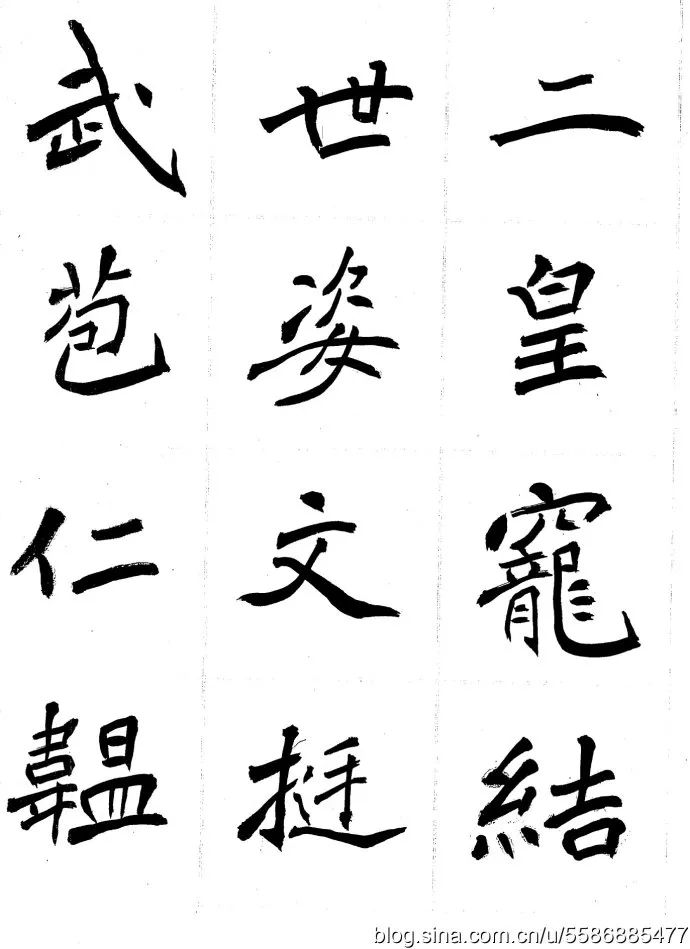 二皇寵結
世姿文挺
武苞仁韞
blog.sina.com.cn/u/5586885477